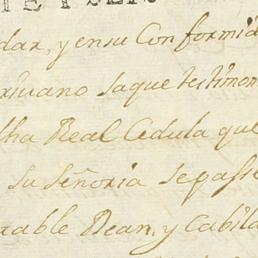 TE Y SEIS
dar, y en su Conformid
crivano saque testimon
dha Real Cedula que
su Señoria se passe
rable Dean, y Cabil